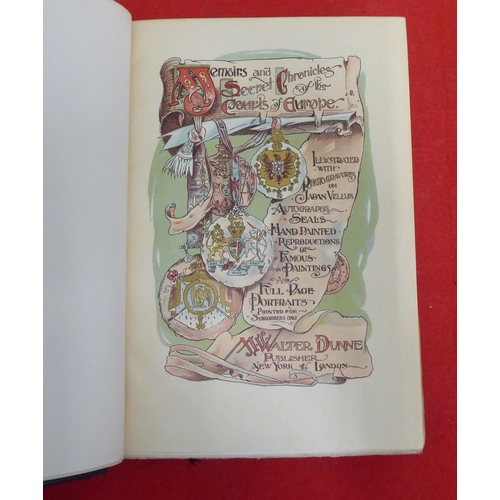 Memoirs and
Secret Chronicles
of the
Courts of Europe
Illustrated
with
Photogravures
on
Japan Vellum
Autographs
Seals
Hand Painted
Reproductions
of
Famous
Paintings
as
Full Page
Portraits
Printed for
Subscribers only
M. Walter Dunne
Publisher
New York & London